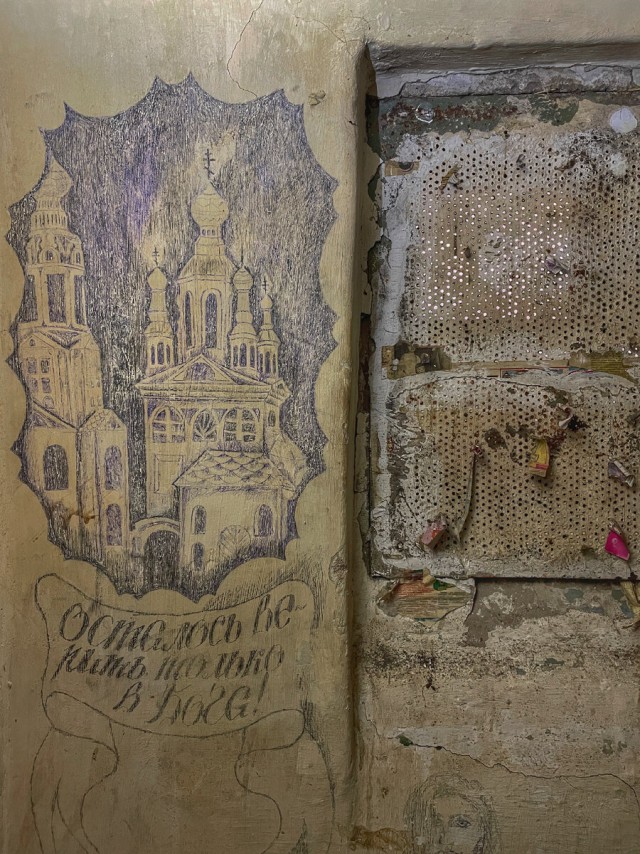 Осталось ве-
рить только
в Бога!